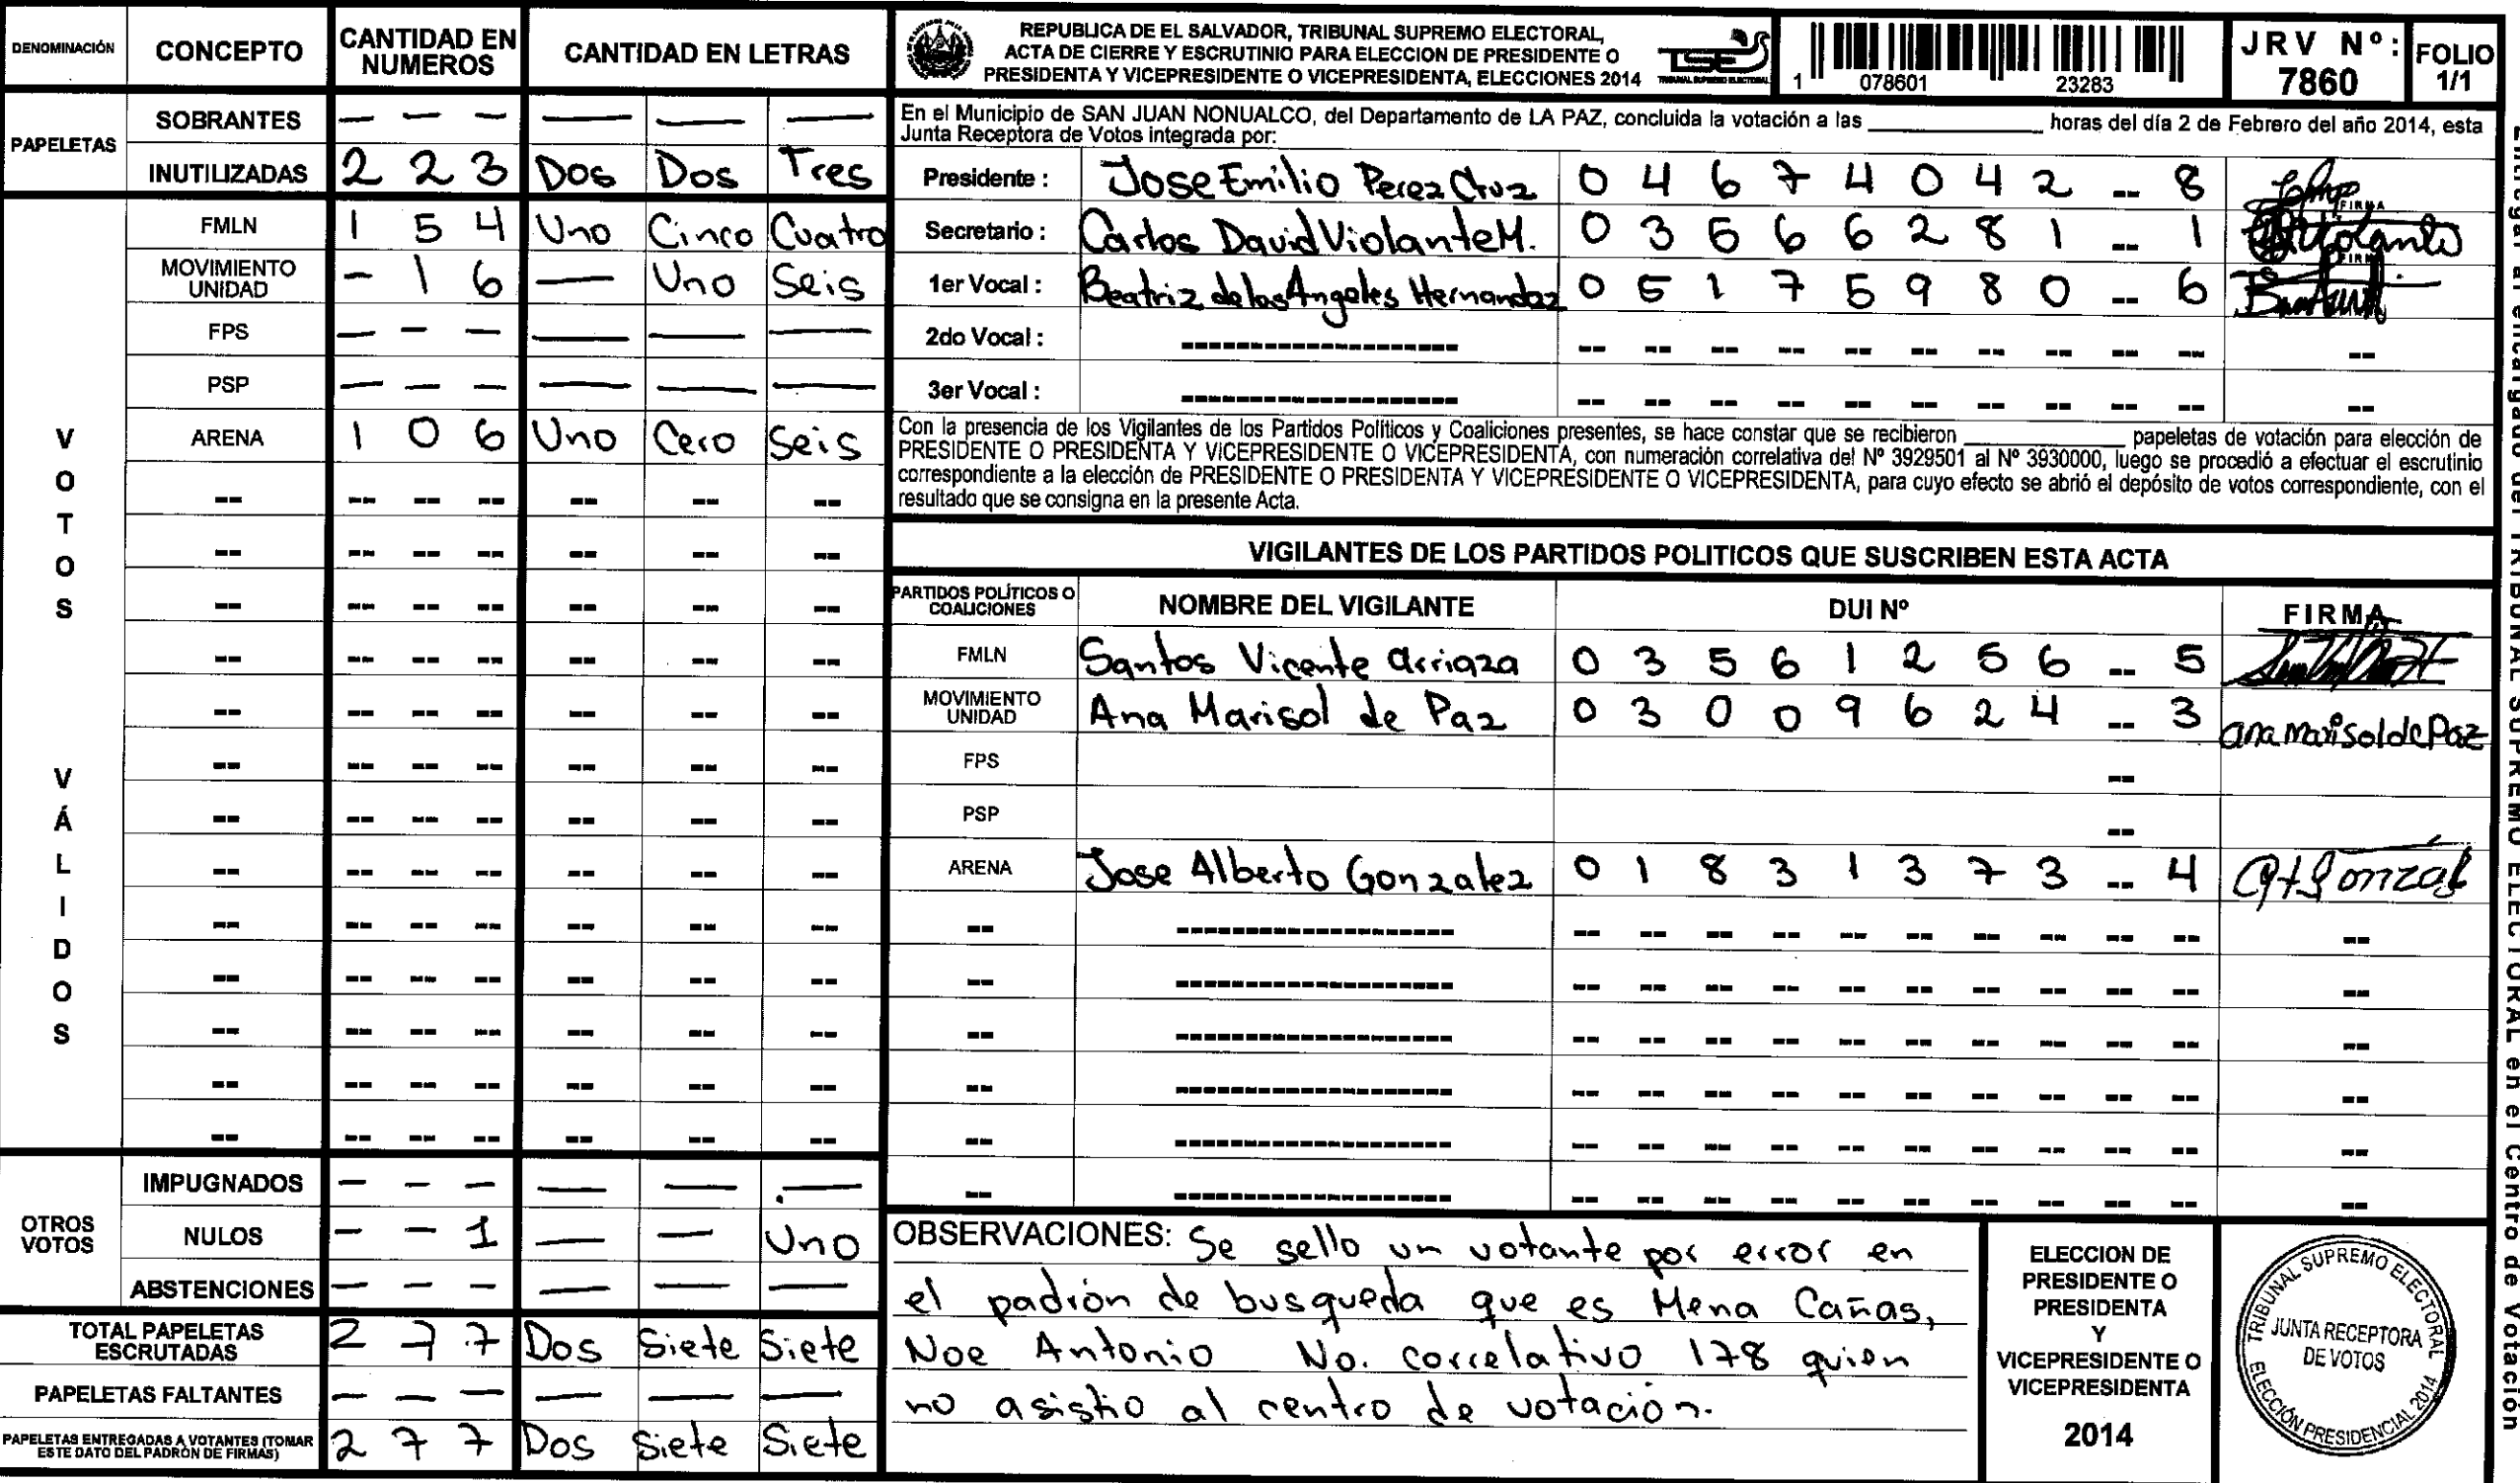 DENOMINACIÓN CONCEPTO CANTIDAD EN NUMEROS CANTIDAD EN LETRAS
PAPELETAS
SOBRANTES — — — — — —
INUTILIZADAS 2 2 3 Dos Dos Tres
VOTOS VÁLIDOS
FMLN 1 5 4 Uno Cinco Cuatro
MOVIMIENTO UNIDAD - 1 6 — Uno Seis
FPS — — — — — —
PSP — — — — — —
ARENA 1 0 6 Uno Cero Seis
OTROS VOTOS
IMPUGNADOS — — — — — —
NULOS — — 1 — — Uno
ABSTENCIONES — — — — — —
TOTAL PAPELETAS ESCRUTADAS 2 7 7 Dos Siete Siete
PAPELETAS FALTANTES — — — — — —
PAPELETAS ENTREGADAS A VOTANTES (TOMAR ESTE DATO DEL PADRÓN DE FIRMAS) 2 7 7 Dos Siete Siete
REPUBLICA DE EL SALVADOR, TRIBUNAL SUPREMO ELECTORAL,
ACTA DE CIERRE Y ESCRUTINIO PARA ELECCION DE PRESIDENTE O
PRESIDENTA Y VICEPRESIDENTE O VICEPRESIDENTA, ELECCIONES 2014
TSE
TRIBUNAL SUPREMO ELECTORAL
1 078601 23283
JRV Nº: 7860
FOLIO 1/1
En el Municipio de SAN JUAN NONUALCO, del Departamento de LA PAZ, concluida la votación a las ____________ horas del día 2 de Febrero del año 2014, esta
Junta Receptora de Votos integrada por:
Presidente : Jose Emilio Perez Cruz 0 4 6 7 4 0 4 2 -- 8 FIRMA
Secretario : Carlos David Violante M. 0 3 5 6 6 2 8 1 -- 1 FIRMA
1er Vocal : Beatriz de los Angeles Hernandez 0 5 1 7 5 9 8 0 -- 6
2do Vocal :
3er Vocal :
Con la presencia de los Vigilantes de los Partidos Políticos y Coaliciones presentes, se hace constar que se recibieron ____________ papeletas de votación para elección de
PRESIDENTE O PRESIDENTA Y VICEPRESIDENTE O VICEPRESIDENTA, con numeración correlativa del Nº 3929501 al Nº 3930000, luego se procedió a efectuar el escrutinio
correspondiente a la elección de PRESIDENTE O PRESIDENTA Y VICEPRESIDENTE O VICEPRESIDENTA, para cuyo efecto se abrió el depósito de votos correspondiente, con el
resultado que se consigna en la presente Acta.
VIGILANTES DE LOS PARTIDOS POLITICOS QUE SUSCRIBEN ESTA ACTA
PARTIDOS POLÍTICOS O COALICIONES NOMBRE DEL VIGILANTE DUI Nº FIRMA
FMLN Santos Vicente Arriaza 0 3 5 6 1 2 5 6 -- 5
MOVIMIENTO UNIDAD Ana Marisol de Paz 0 3 0 0 9 6 2 4 -- 3 ana marisol de Paz
FPS --
PSP --
ARENA Jose Alberto Gonzalez 0 1 8 3 1 3 7 3 -- 4
OBSERVACIONES: Se sello un votante por error en
el padrón de busqueda que es Mena Cañas,
Noe Antonio No. correlativo 178 quien
no asistio al centro de votación.
ELECCION DE
PRESIDENTE O
PRESIDENTA
Y
VICEPRESIDENTE O
VICEPRESIDENTA
2014
TRIBUNAL SUPREMO ELECTORAL
JUNTA RECEPTORA
DE VOTOS
ELECCIÓN PRESIDENCIAL 2014
Entregar al encargado del TRIBUNAL SUPREMO ELECTORAL en el Centro de Votación